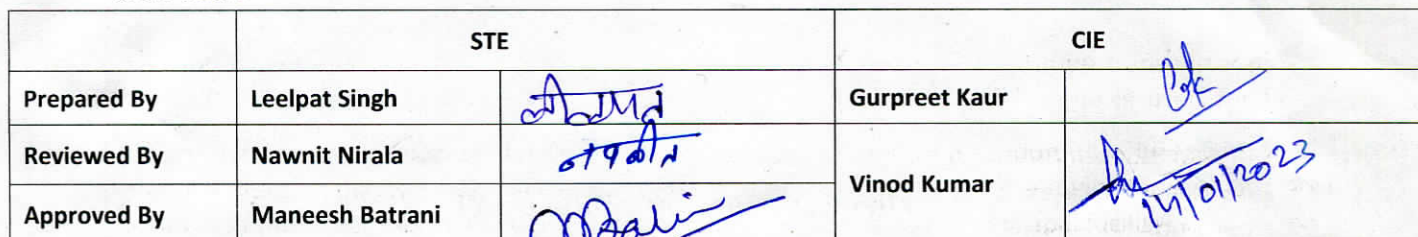 STE CIE
Prepared By Leelpat Singh लीलपत Gurpreet Kaur
Reviewed By Nawnit Nirala नवनीत
Vinod Kumar 14/01/2023
Approved By Maneesh Batrani